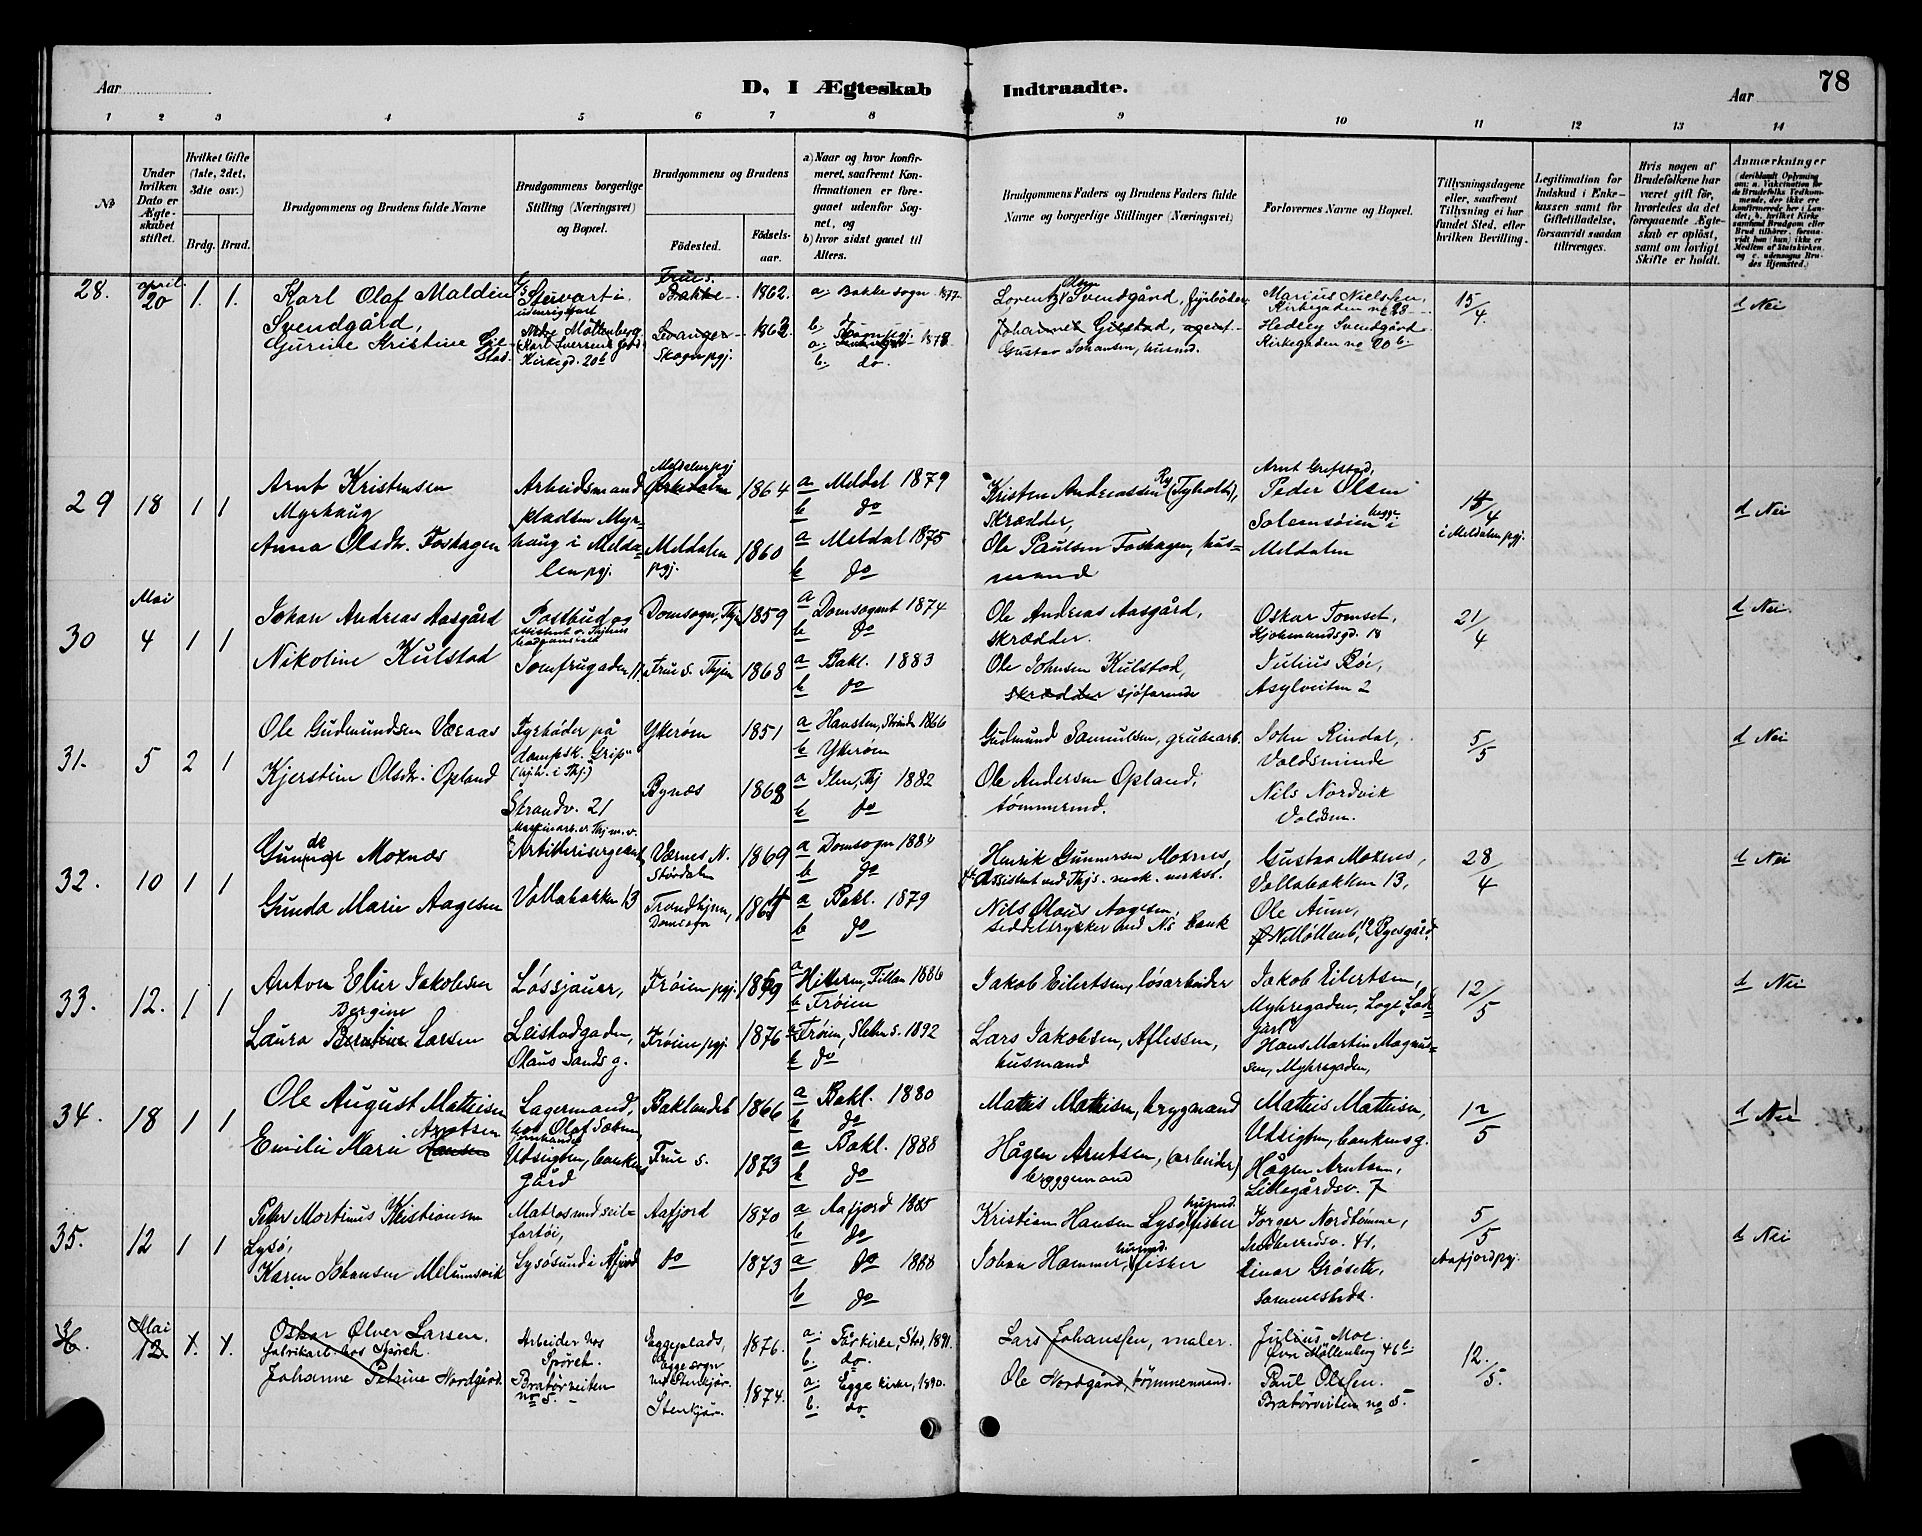 78
Aar
D, I Ægteskab Indtraadte.
Aar
1 2 3 4 5 6 7 8 9 10 11 12 13 14
No
Under hvilken Dato er Ægteskabet stiftet.
Hvilket Gifte (1ste, 2det, 3die osv.)
Brdg. Brud.
Brudgommens og Brudens fulde Navne
Brudgommens borgerlige Stilling (Næringsvei) og Bopæl.
Brudgommens og Brudens
Födested.
Födselsaar.
a) Naar og hvor konfirmeret, saafremt Konfirmationen er foregaaet udenfor Sognet, og
b) hvor sidst gaaet til Alters.
Brudgommens Faders og Brudens Faders fulde Navne og borgerlige Stillinger (Næringsvei)
Forlovernes Navne og Bopæl.
Tillysningsdagene eller, saafremt Tillysning ei har fundet Sted, efter hvilken Bevilling.
Legitimation for Indskud i Enkekassen samt for Giftetilladelse, forsaavidt saadan tiltrænges.
Hvis nogen af Brudefolkene har været gift för, hvorledes da det foregaaende Ægteskab er oplöst, samt om lovligt Skifte er holdt.
Anmærkninger
28. april 20 1. 1.
Karl Olaf Maldin Svendgård,
Gurine Kristine Gjestad.
Stuvart i udenrigsfart
Nedre Møllenberg
Kirkegd. 20b
Frues. Bakke 1862.
Levanger Skogn pgj. 1862
a. Bakke sogn 1877
b. do
a. 1878
b. do.
Svendgård, fyrbøder
Gjestad,
Gustav Johansen, husmd.
Marius Nielsen, Kirkegaden no 28
Hedley Svendgård Kirkegaden no 20 b.
15/4.
d Nei
29 18 1 1
Arnt Kristensen Myrhaug
Anna Olsdtr. Foshagen
Arbeidsmand pladsen Myrhaug i Meldalen pgj.
Meldalen pgj Orkedalen 1864
Meldalen pgj. 1860
a Meldal 1879
b do
a Meldal 1875
b do
Kristen Andreassen Ry (Tyholt), skrædder,
Ole Paulsen Foshagen, husmand
Arnt Grefstad,
Peder Olsen Solemsøien begge i Meldalen
18/4 i Meldalen pgj.
d Nei
Mai
30 4 1 1
Johan Andreas Aasgård
Nikoline Kulstad
Postbud og assistent v. Thjems badeanstalt
Jomfrugaden 11
Domsogn, Thjm 1859
Frue s. Thjem 1868
a Domsognet 1874
b do
a Bakl. 1883
b do
Ole Andreas Aasgård, skrædder.
Ole Johnsen Kulstad, skrædder sjøfarende
Oskar Tomset, Kjøbmandsgd. 18
Julius Röe, Asylveiten 2
21/4
d Nei.
31. 5 2 1
Ole Gudmundsen Væraas
Kjerstine Olsdtr. Opland
Fyrbøder på dampsk. "Grip" (hjh. i Thj.)
Strandv. 21
Ykerøen 1851
Bynæs 1868
a Havsten, Strinda 1866
b Ykerøen
a Ilen, Thj 1882
b do
Gudmund Samuelsen, grubearb.
Ole Andersen Opland, tømmermd.
John Rindal, Voldsminde
Nils Nordvik Voldsm.
5/5
d Nei
32. 10 1 1
Gunnar Moxnæs
Gunda Marie Aagesen
Maskinarb. v. Thj. m. v.
Artillerisergeant,
Vollabakken 13
Værnes N. Størdalen 1869
Trondhjem, Domsogn 1864
a Domsogn 1884
b do
a Bakl. 1879
b do
Henrik Gunnersen Moxnes, assistent ved Thjs. mek. verkst.
Nils Olaus Aagesen, seddeltrykker ved Ns. bank
Gustav Moxnes, Vollabakken 13,
Ole Aune, N. Møllenb. 12 Byesgård.
28/4
d Nei
33. 12. 1 1
Anton Elier Jakobsen
Laura Bergine Berntine Larsen
Løssjauer,
Leistadgaden, Olaus Sands g.
Frøien pgj. 1869
Frøien pgj. 1876
a Hitteren, Fillan 1886
b Frøien
a Frøien, Sletten s. 1892
b do
Jakob Eilertsen, løsarbeider
Lars Jakobsen, Aflessen, husmand
Jakob Eilertsen, Myhregaden,
Hans Martin Magnussen, Myhregaden,
12/5
d Nei
34. 18 1 1
Ole August Mathisen
Emilie Marie Arntsen Hansen
Lagermand, hos Olaf Sæther,
Udsigten, bankens gård
Baklandet 1866
Frue s. 1873
a Bakl. 1880
b do
a Bakl. 1888
b do
Mathis Mathisen, brygmand
Hågen Arntsen, (arbeider) bryggemand
Mathis Mathisen, Udsigten, bankens g.
Hågen Arntsen, Lillegårdsv. 7
12/5
d Nei
35. 12 1 1
Peter Martinus Kristiansen Lysø,
Karen Johansen Melumsvik
Matros med seilfartøi,
Lysøsund i Åfjord
Aafjord 1870
do 1873
a Aafjord 1885
b do
a do 1888
b do
Kristian Hansen Lysø, husmd. fisker
Johan Hammer, husmd. fisker
Jørger Nordtømme,
Einar Grøseth, Sammesteds.
5/5 Aafjord pgj.
d Nei
Mai 12 1. 1.
Oskar Ølver Larsen, fabrikarb. hos Spørch.
Johanne Petrine Nordgård.
Arbeider hos Spørch.
Bratørveiten no 5.
Eggeplads, Egge sogn ved Stenkjær. 1876.
Stenkjær. 1874.
a. 1891.
b. do.
a. Egge kirke, 1890.
b. do
Lars Johanssen, maler.
Ole Nordgård, tømmermand.
Julius Moe. Øvre Møllenberg 46 c.
Paul Olssen. Bratørveiten no 5.
12./5.